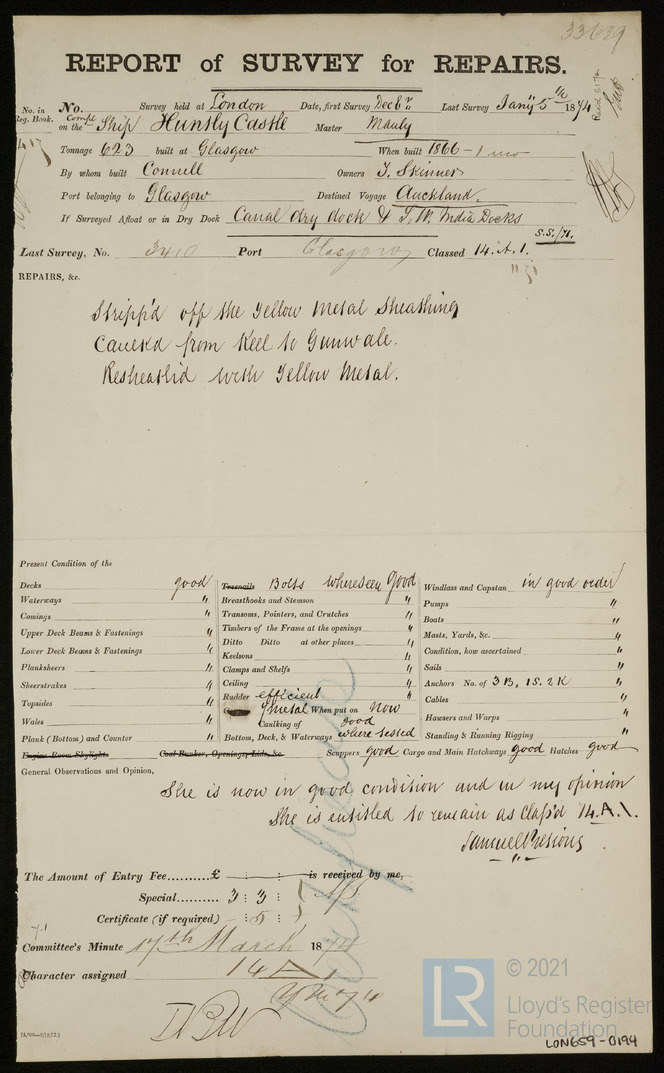 33639
REPORT of SURVEY for REPAIRS.
No. in Reg. Book. No. Survey held at London Date, first Survey Dec 6th Last Survey Jany 5th 1874
on the Ship Huntly Castle Master
Tonnage 623 built at Glasgow When built 1866 - 1 mo
By whom built Connell Owners T. Skinner
Port belonging to Glasgow Destined Voyage Auckland.
If Surveyed Afloat or in Dry Dock Canal dry dock & S. W. India Docks
S.S./71.
Last Survey, No. 3410 Port Glasgow Classed 14.A.1.
REPAIRS, &c.
Stripp'd off the Yellow Metal Sheathing
Caulk'd from Keel to Gunwale.
Resheath'd with Yellow Metal.
Present Condition of the
Decks good
Waterways "
Comings "
Upper Deck Beams & Fastenings "
Lower Deck Beams & Fastenings "
Planksheers "
Sheerstrakes "
Topsides "
Wales "
Plank (Bottom) and Counter "
Engine Room Skylights Coal Bunker, Openings, Lids, &c.
Treenails Bolts where seen Good
Breasthooks and Stemson "
Transoms, Pointers, and Crutches "
Timbers of the Frame at the openings "
Ditto Ditto at other places "
Keelsons "
Clamps and Shelfs "
Ceiling "
Rudder efficient "
Y metal When put on now
Caulking of good
Bottom, Deck, & Waterways where tested
Windlass and Capstan in good order
Pumps "
Boats "
Masts, Yards, &c. "
Condition, how ascertained "
Sails "
Anchors No. of 3 B, 1 S. 2 K "
Cables "
Hawsers and Warps "
Standing & Running Rigging "
Scuppers good Cargo and Main Hatchways good Hatches good
General Observations and Opinion,
She is now in good condition and in my opinion
She is entitled to remain as Class'd 14.A.1.
Samuel
The Amount of Entry Fee..........£ : : is received by me,
Special.......... 3 : 3 :
Certificate (if required) : 5 :
Committee's Minute 17th March 1874
Character assigned 14 A 1
Certificate
© 2021
LR
Lloyd's Register
Foundation
LON659-0194